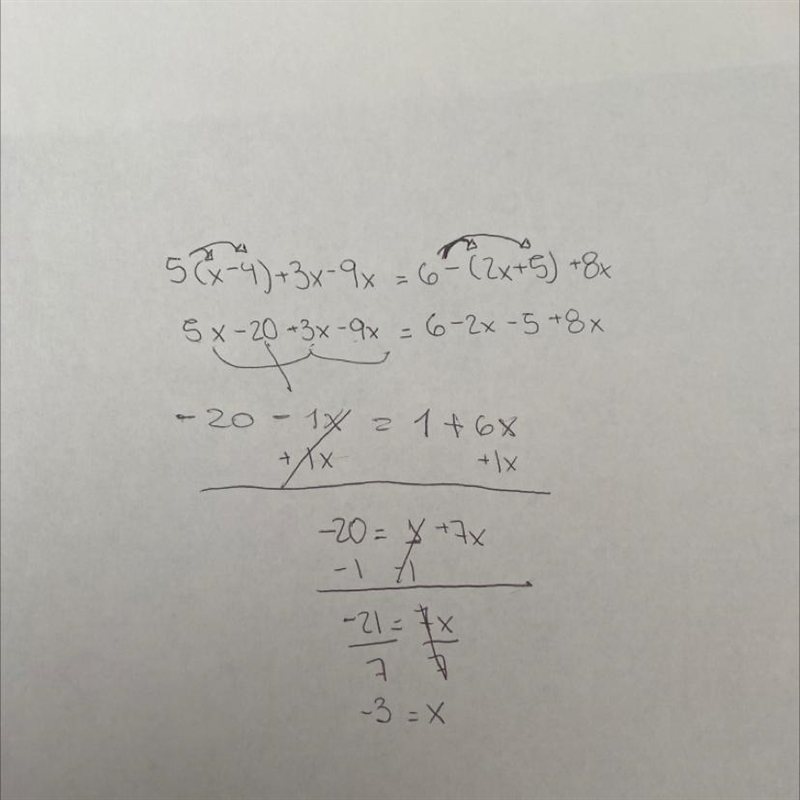 5(x-4)+3x-9x = 6-(2x+5)+8x
5x-20+3x-9x = 6-2x-5+8x
-20 - 1x = 1 + 6x
+1x +1x
-20 = 1 +7x
-1 -1
-21 = 7x
7 7
-3 = x